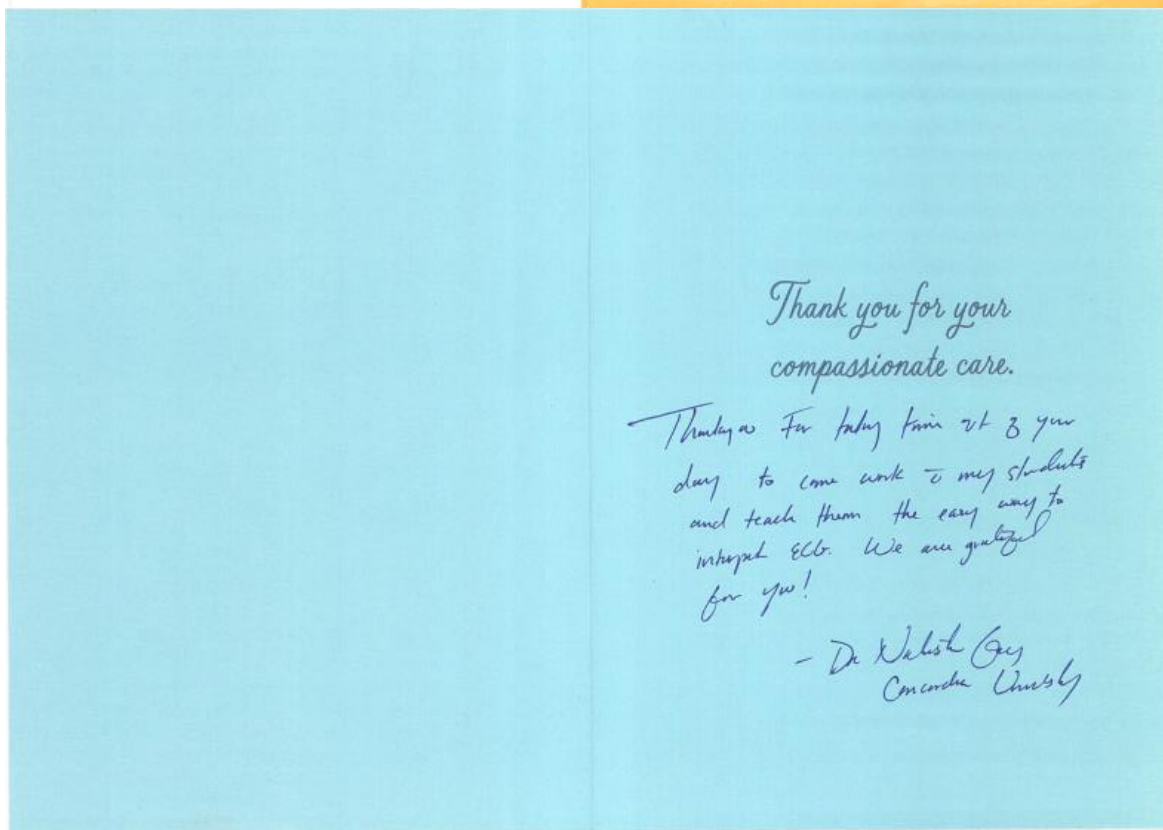 Thank you for your
compassionate care.
Thankyou For taking time out of your
day to come work c̄ my students
and teach them the easy way to
interpret ECG. We are grateful
for you!
- Dr
Concordia University